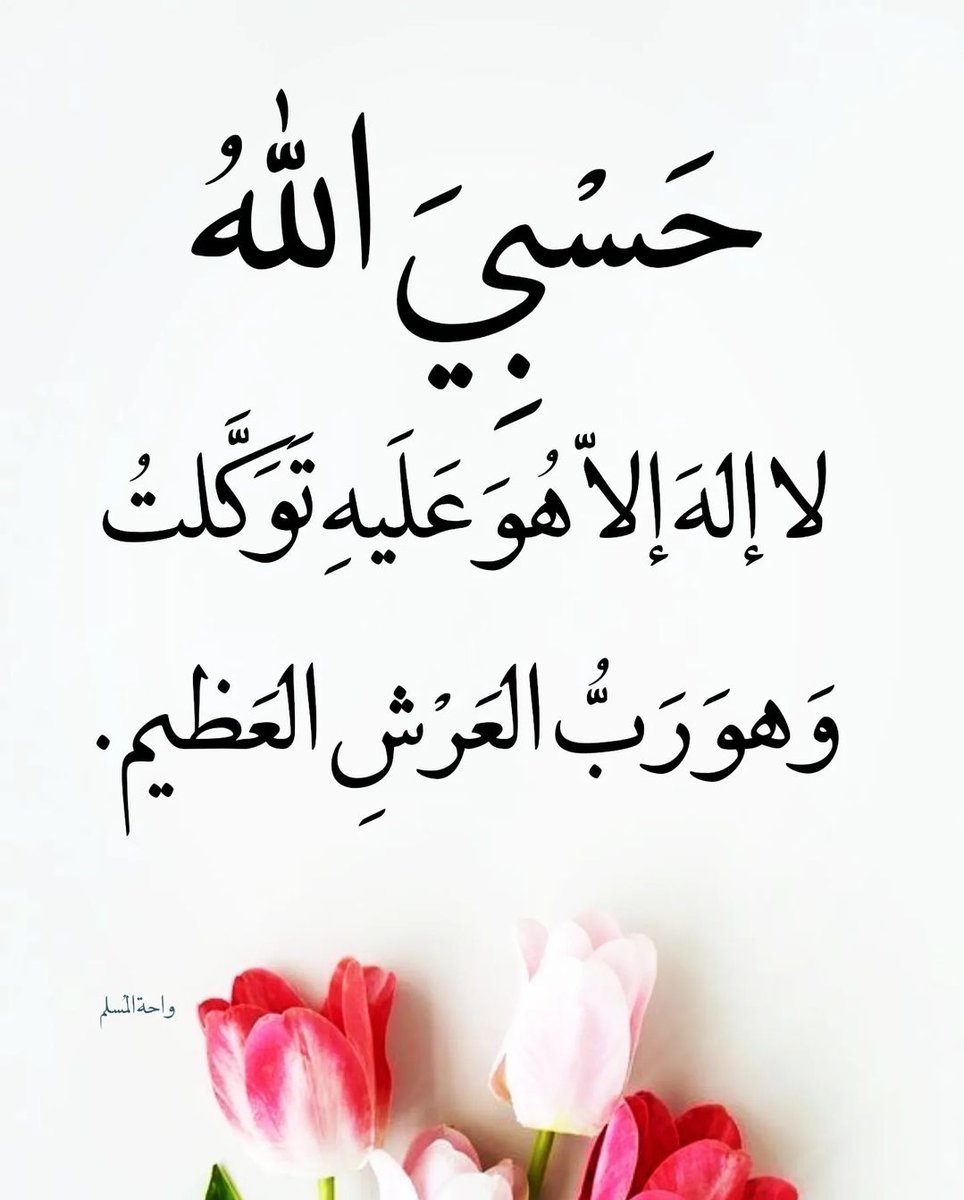 حَسْبِيَ اللّٰهُ
لا إلهَ إلاّ هُوَ عَلَيهِ تَوَكَّلتُ
وَهوَ رَبُّ العَرْشِ العَظيم.
واحة المسلم